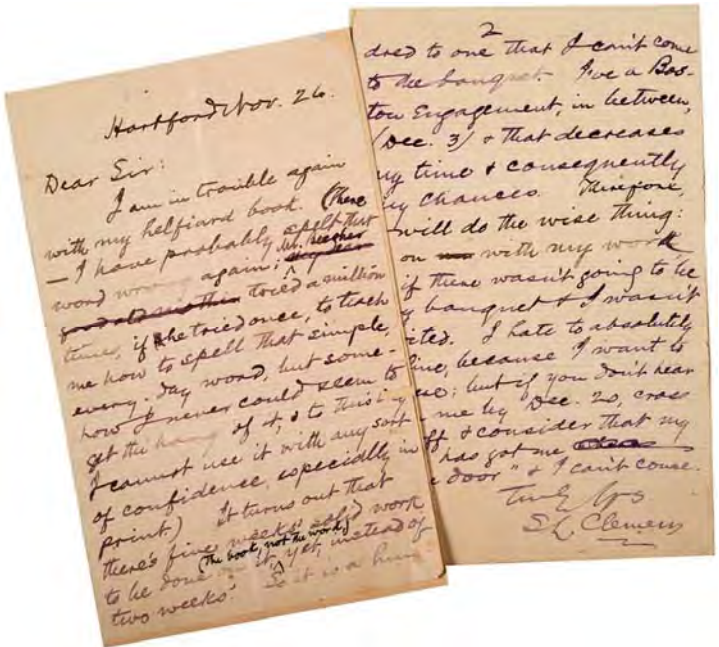 Hartford Nov. 26.
Dear Sir:
I am in trouble again
with my helfiard book. (There
— I have probably spelt that
word wrong again; Mr. Beecher
tried a million
times, if he tried once, to teach
me how to spell that simple,
every-day word, but some-
how I never could seem to
get the hang of it, & to this day
I cannot use it with any sort
of confidence, especially in
print.) It turns out that
there's five weeks' solid work
(the book, not the word)
to be done on it, yet, instead of
two weeks'. So it is a hun-
2
dred to one that I can't come
to the banquet. I've a Bos-
ton Engagement, in between,
(Dec. 3) & that decreases
my time & consequently
my chances. Therefore,
will do the wise thing:
on with my work
if there wasn't going to be
banquet & I wasn't
ited. I hate to absolutely
line, because I want to
; but if you don't hear
me by Dec. 20, cross
ff & consider that my
has got me
door" & I can't come.
Truly Yrs
S L Clemens